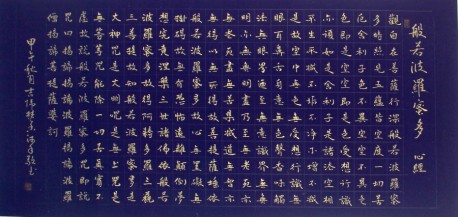 般若波羅蜜多 心經
觀自在菩薩行深般若波羅蜜
多時照見五蘊皆空度一切苦
厄舍利子色不異空空不異色
色即是空空即是色受想行識
亦復如是舍利子是諸法空相
不生不滅不垢不淨不增不減
是故空中無色無受想行識無
眼耳鼻舌身意無色聲香味觸
法無眼界乃至無意識界無無
明亦無無明盡乃至無老死亦
無老死盡無苦集滅道無智亦
無得以無所得故菩提薩埵依
般若波羅蜜多故心無罣礙無
罣礙故無有恐怖遠離顛倒夢
想究竟涅槃三世諸佛依般若
波羅蜜多故得阿耨多羅三藐
三菩提故知般若波羅蜜多是
大神咒是大明咒是無上咒是
無等等咒能除一切苦真實不
虛故說般若波羅蜜多咒即說
咒曰揭諦揭諦波羅揭諦波羅
僧揭諦菩提薩婆訶
甲午秋月